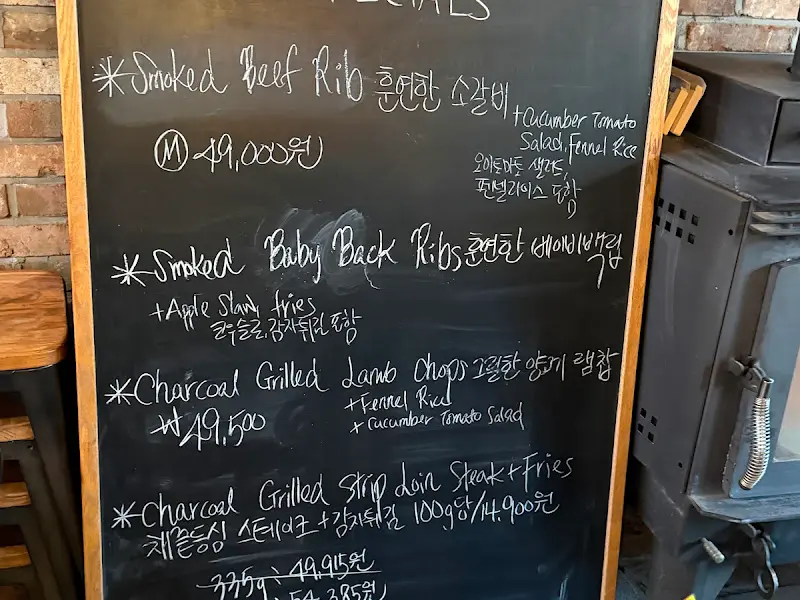 SPECIALS
*Smoked Beef Rib 훈연한 소갈비
+Cucumber Tomato
Salad, Fennel Rice
오이토마토 샐러드,
펜넬라이스 포함
Ⓜ 49,000원
*Smoked Baby Back Ribs 훈연한 베이비백립
+Apple Slaw, fries
코우슬로, 감자튀김 포함
*Charcoal Grilled Lamb Chops 그릴한 양고기 램찹
+Fennel Rice
+Cucumber Tomato Salad
₩49,500
*Charcoal Grilled Strip Loin Steak+Fries
채끝등심 스테이크+감자튀김 100g당/14,900원
335g: 49,915원
54,385원